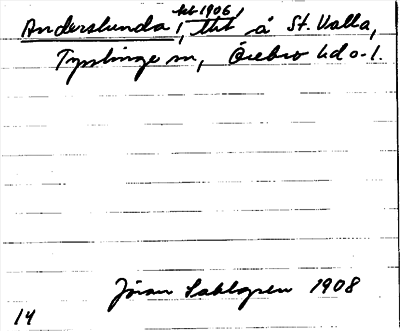 feb 1906
Anderslunda, tht å St. Valla,
Tysslinge sn, Örebro hd o. l.
Jöran Sahlgren 1908
14